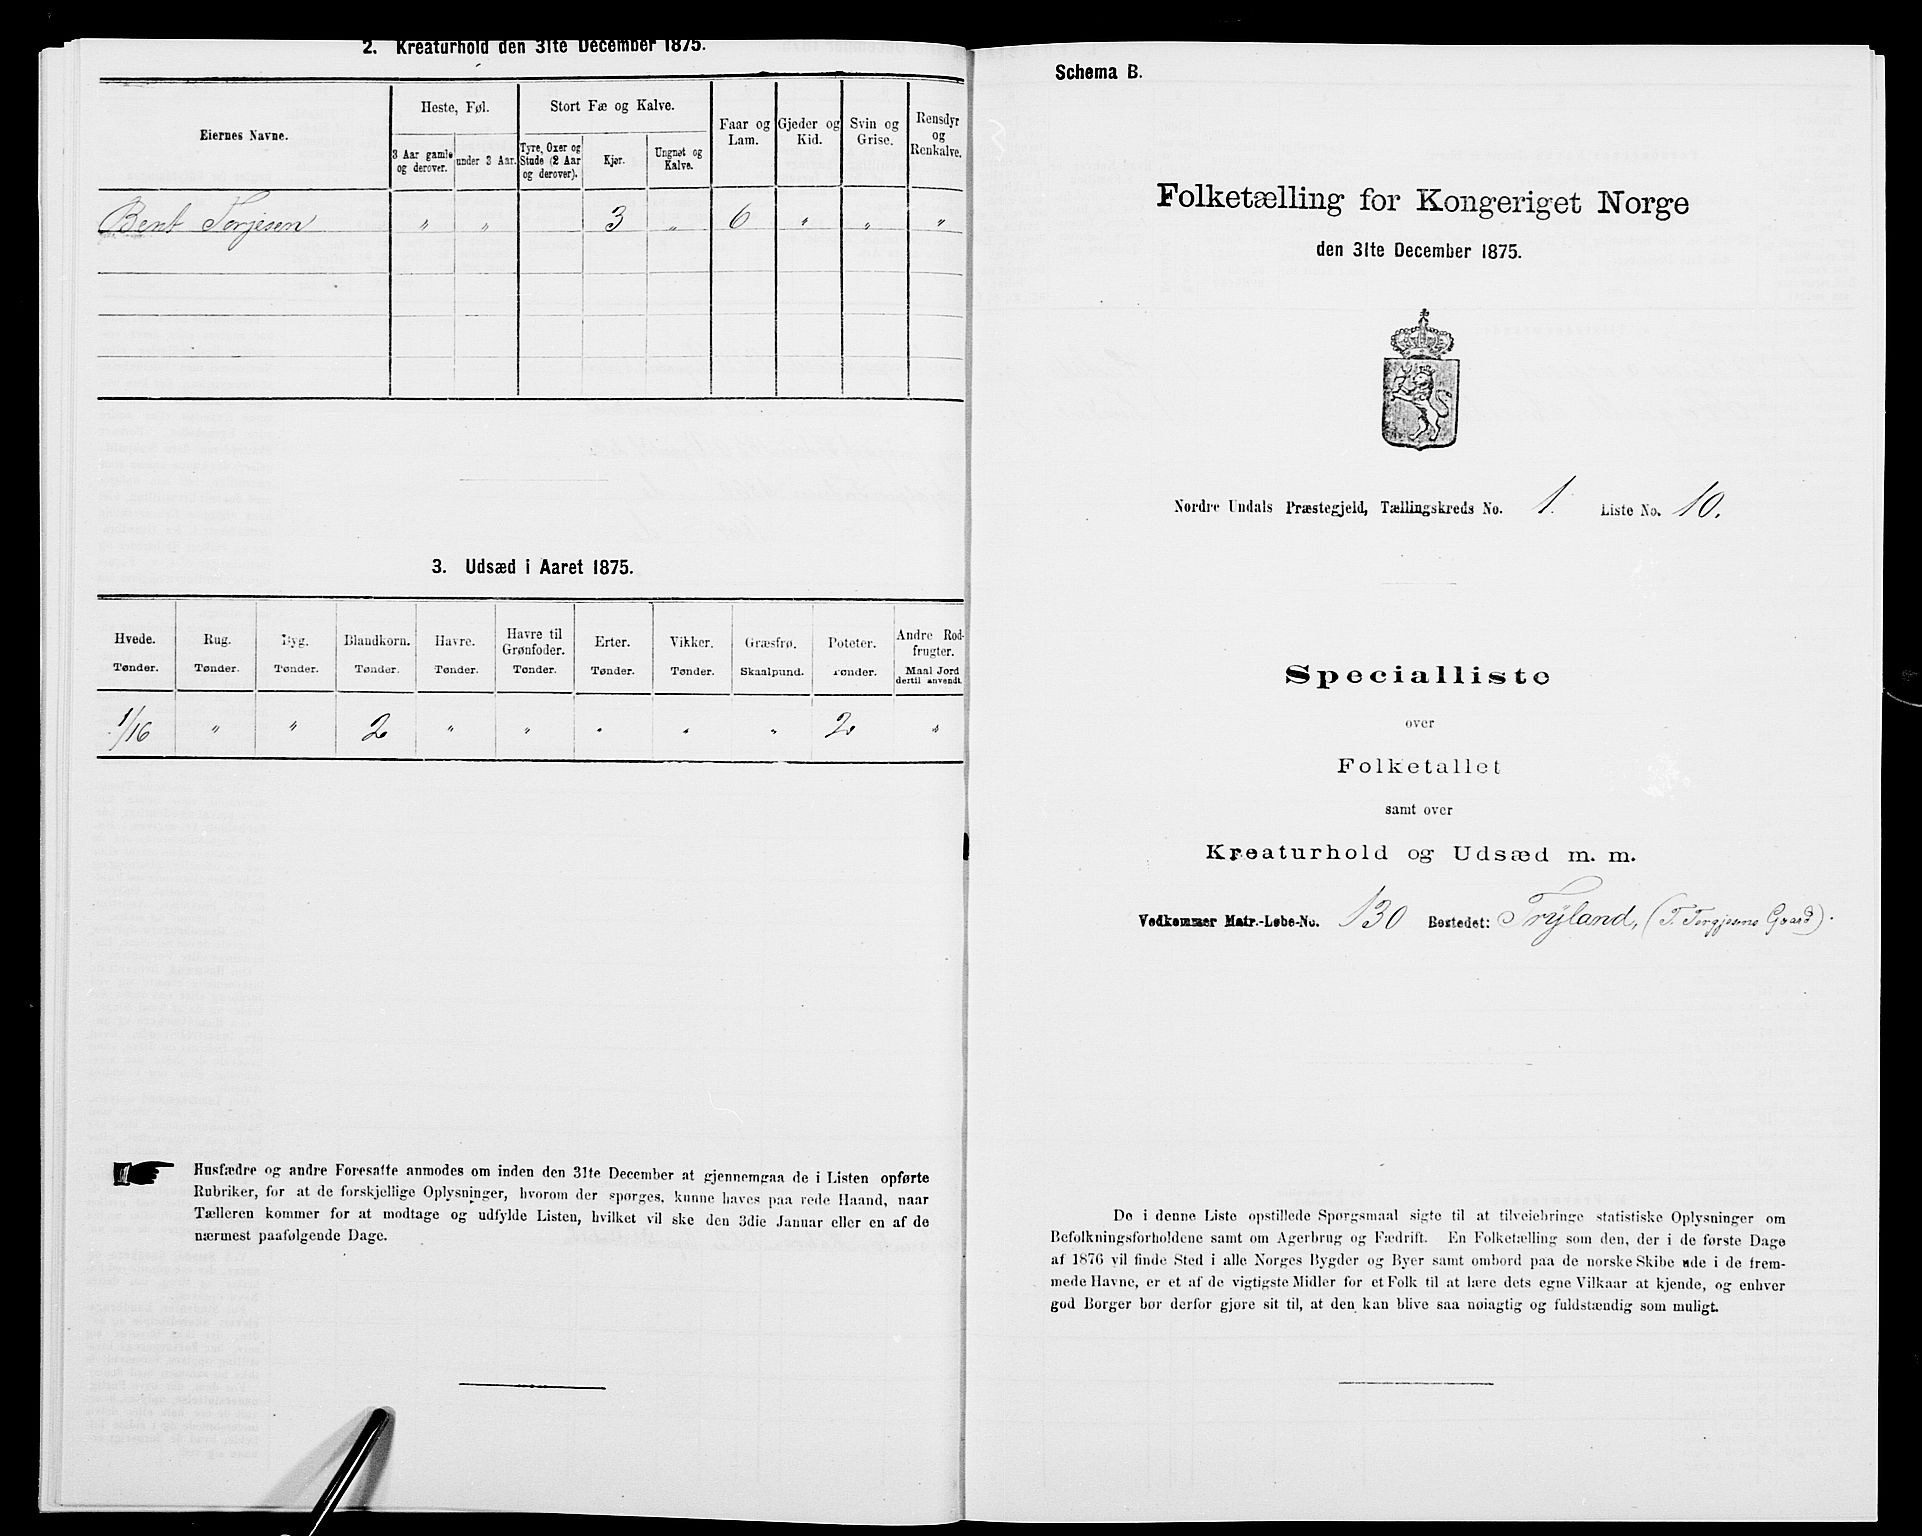 2. Kreaturhold den 31te December 1875.
Eiernes Navne.
Heste, Føl.
Stort Fæ og Kalve.
Faar og Lam.
Gjeder og Kid.
Svin og Grise.
Rensdyr og Renkalve.
3 Aar gamle og derover.
under 3 Aar.
Tyre, Oxer og Stude (2 Aar og derover).
Kjør.
Ungnøt og Kalve.
Bent Torjesen " " 3 " 6 " " "
3. Udsæd i Aaret 1875.
Hvede. Rug. Byg. Blandkorn. Havre. Havre til Grønfoder. Erter. Vikker. Græsfrø. Poteter. Andre Rodfrugter.
Tønder. Tønder. Tønder. Tønder. Tønder. Tønder. Tønder. Tønder. Skaalpund. Tønder. Maal Jord dertil anvendt.
1/16 " " 2 " " " " " 2 "
Husfædre og andre Foresatte anmodes om inden den 31te December at gjennemgaa de i Listen opførte
Rubriker, for at de forskjellige Oplysninger, hvorom der spørges, kunne haves paa rede Haand, naar
Tælleren kommer for at modtage og udfylde Listen, hvilket vil ske den 3die Januar eller en af de
nærmest paafølgende Dage.
Schema B.
Folketælling for Kongeriget Norge
den 31te December 1875.
Nordre Undals Præstegjeld, Tællingskreds No. 1. Liste No. 10.
Specialliste
over
Folketallet
samt over
Kreaturhold og Udsæd m. m.
Vedkommer Matr.-Løbe-No. 130 Bostedet: Tryland, (T. Torgjesens Gaard).
De i denne Liste opstillede Spørgsmaal sigte til at tilveiebringe statistiske Oplysninger om
Befolkningsforholdene samt om Agerbrug og Fædrift. En Folketælling som den, der i de første Dage
af 1876 vil finde Sted i alle Norges Bygder og Byer samt ombord paa de norske Skibe ude i de frem-
mede Havne, er et af de vigtigste Midler for et Folk til at lære dets egne Vilkaar at kjende, og enhver
god Borger bør derfor gjøre sit til, at den kan blive saa nøiagtig og fuldstændig som muligt.